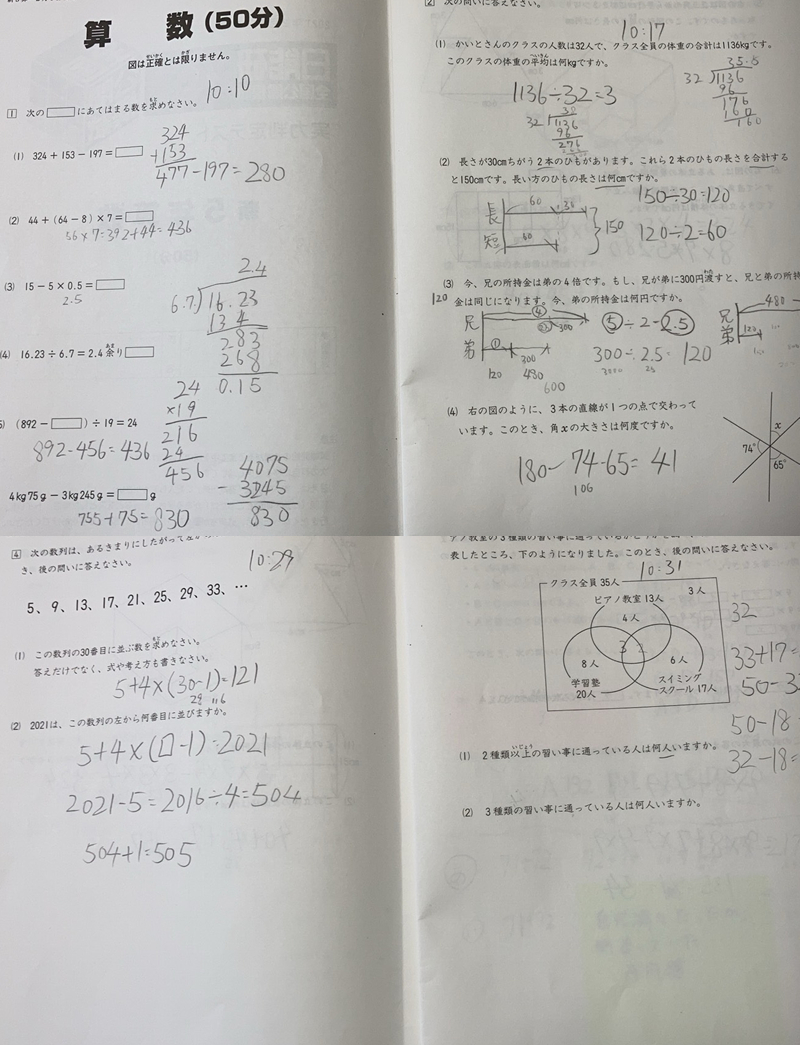 算 数 (50分)
図は正確とは限りません。
10:10
1 次の□にあてはまる数を求めなさい。
(1) 324+153-197=□
324
+153
477-197=280
(2) 44+(64-8)×7=□
56×7=392+44=436
(3) 15-5×0.5=□
2.5
2.4
6.7)16.23
134
283
268
0.15
(4) 16.23÷6.7=2.4余り□
(892-□)÷19=24
892-456=436
24
×19
216
24
456
4kg75g-3kg245g=□g
755+75=830
4075
-3245
830
2 次の問いに答えなさい。
10:17
(1) かいとさんのクラスの人数は32人で、クラス全員の体重の合計は1136kgです。
このクラスの体重の平均は何kgですか。
1136÷32=3
32)1136
96
35.5
32)1136
96
176
160
160
(2) 長さが30cmちがう2本のひもがあります。これら2本のひもの長さを合計する
と150cmです。長い方のひもの長さは何cmですか。
長 60 30
短 60
150
150÷30=120
120÷2=60
(3) 今、兄の所持金は弟の4倍です。もし、兄が弟に300円渡すと、兄と弟の所持
金は同じになります。今、弟の所持金は何円ですか。
120
兄 ④ 300
弟 ① 300
120 480
600
⑤÷2=2.5
300÷2.5=120
兄 480
弟 120
(4) 右の図のように、3本の直線が1つの点で交わって
います。このとき、角xの大きさは何度ですか。
180-74-65=41
106
x
74°
65°
4 次の数列は、あるきまりにしたがって左か
き、後の問いに答えなさい。
10:29
5、9、13、17、21、25、29、33、…
(1) この数列の30番目に並ぶ数を求めなさい。
答えだけでなく、式や考え方も書きなさい。
5+4×(30-1)=121
29 116
(2) 2021は、この数列の左から何番目に並びますか。
5+4×(□-1)=2021
2021-5=2016÷4=504
504+1=505
表したところ、下のようになりました。このとき、後の問いに答えなさい。
10:31
クラス全員 35人
ピアノ教室 13人
3人
4人
3
8人
6人
学習塾
20人
スイミング
スクール 17人
32
33+17=
50-3
50-18
32-18=
(1) 2種類以上の習い事に通っている人は何人いますか。
(2) 3種類の習い事に通っている人は何人いますか。